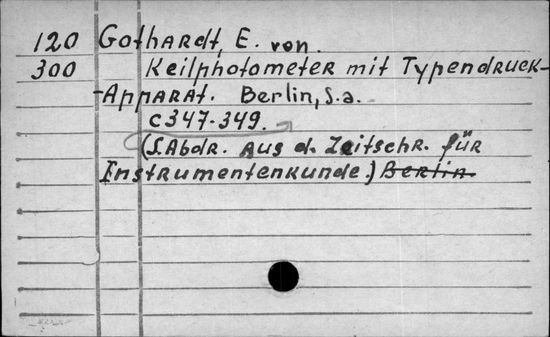 120 Gothardt, E. von.
300 Keilphotometer mit Typendruck-
-Apparat. Berlin, S.a.
c 347-349.
(S.Abdr. aus d. Zeitschr. für
Instrumentenkunde.) Berlin.